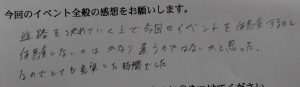 今回のイベント全般の感想をお願いします。
進路を決めていく上で今回のイベントを体験するのと
体験しないのはかなり違うのではないかと思った。
なのでとても充実した時間でした
ください